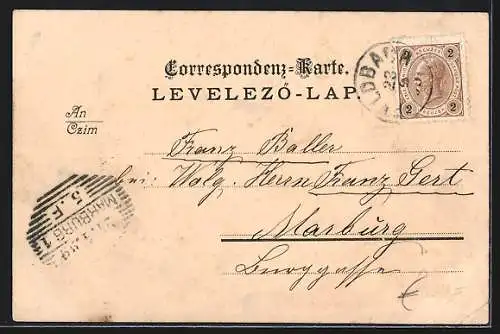 Correspondenz-Karte.
LEVELEZŐ-LAP.
An
Czim
FELDBACH
2 2
2 2
Franz Baller
bei Wolg. Herrn Franz Gert
Marburg
Burggasse
MARBURG 1
5. F